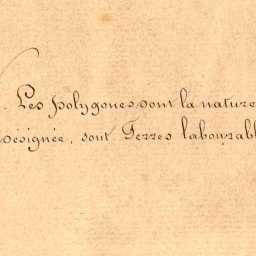 Les polygones dont la nature
désignée, sont Terres labourabl